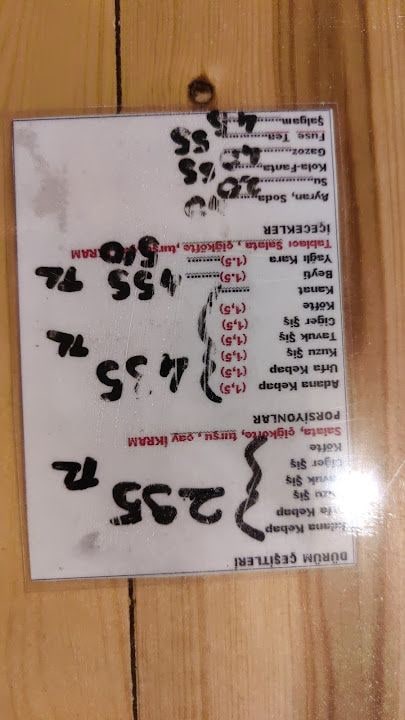 DÜRÜM ÇEŞİTLERİ
Adana Kebap
Urfa Kebap
Kuzu Şiş
Tavuk Şiş 235 TL
Ciğer Şiş
Köfte
Salata, çiğköfte, turşu, çay İKRAM
PORSİYONLAR
Adana Kebap (1,5)
Urfa Kebap (1,5)
Kuzu Şiş (1,5) 435 TL
Tavuk Şiş (1,5)
Ciğer Şiş (1,5)
Köfte (1,5)
Kanat
Beyti (1.5) 455 TL
Yağlı Kara (1.5) 510
Tablacı Salata, çiğköfte, turşu, İKRAM
İÇECEKLER
Ayran, Soda
Su
Kola-Fanta 65
Gazoz
Fuse Tea 55
Şalgam 45